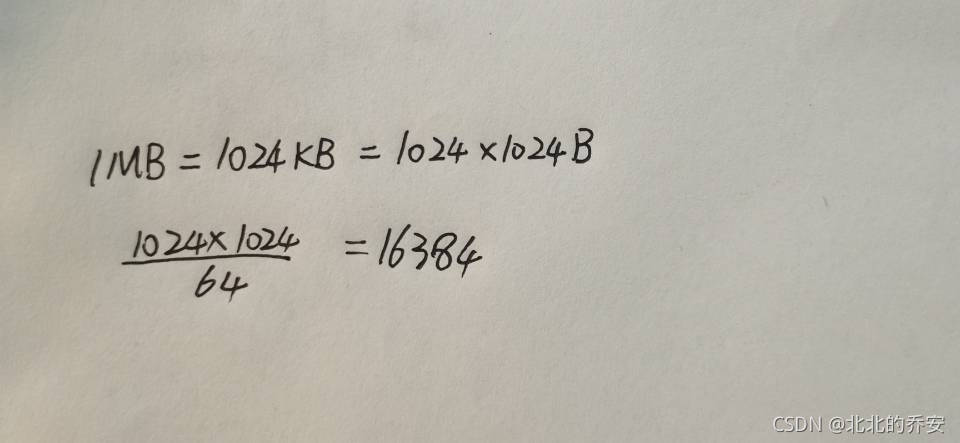 1MB = 1024KB = 1024×1024B
1024×1024
64
=16384
CSDN @北北的乔安